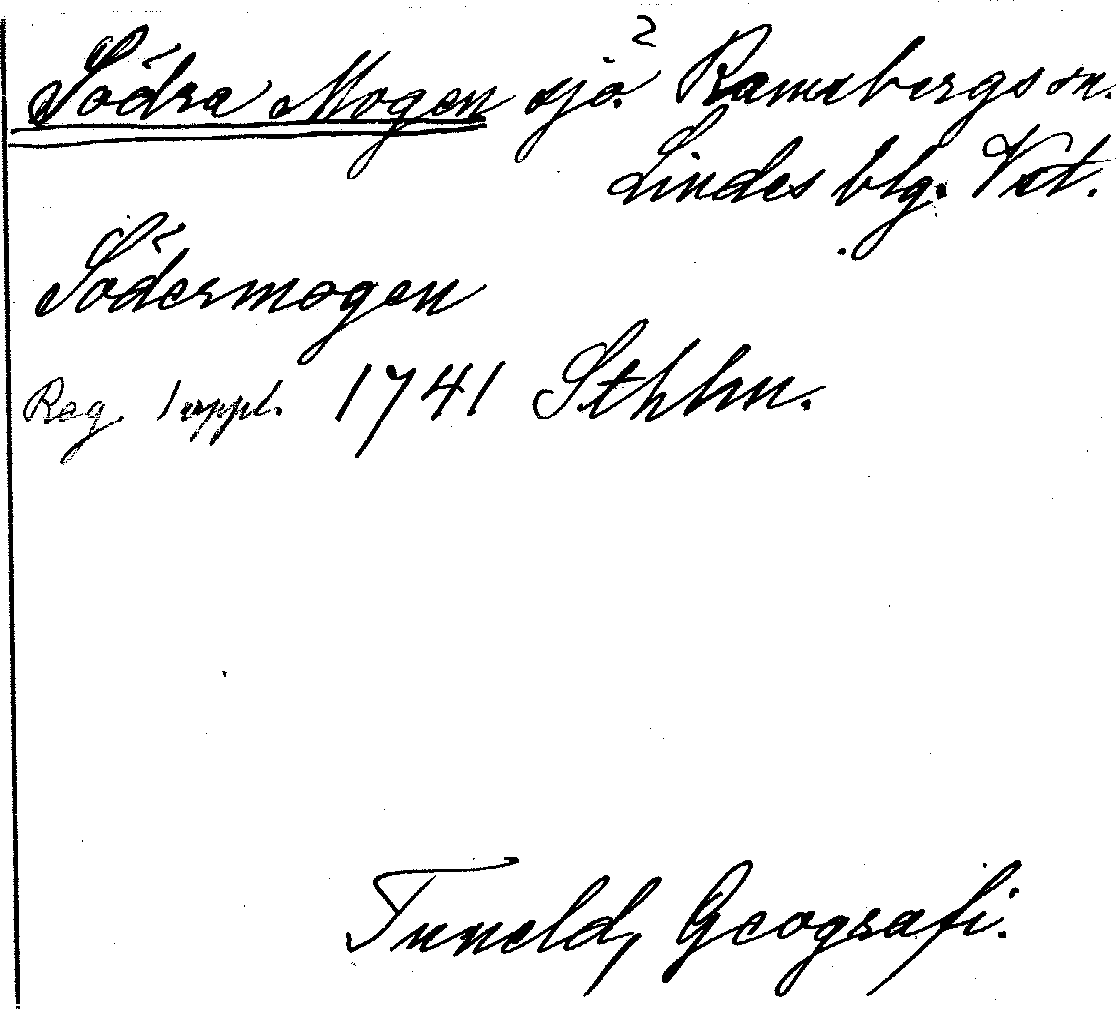 Södra Mogen sjö? Ramsbergs sn.
Lindes blg. Vstl.
Södermogen
Reg. 1 uppl. 1741 Sthlm.
Tuneld, Geografi.